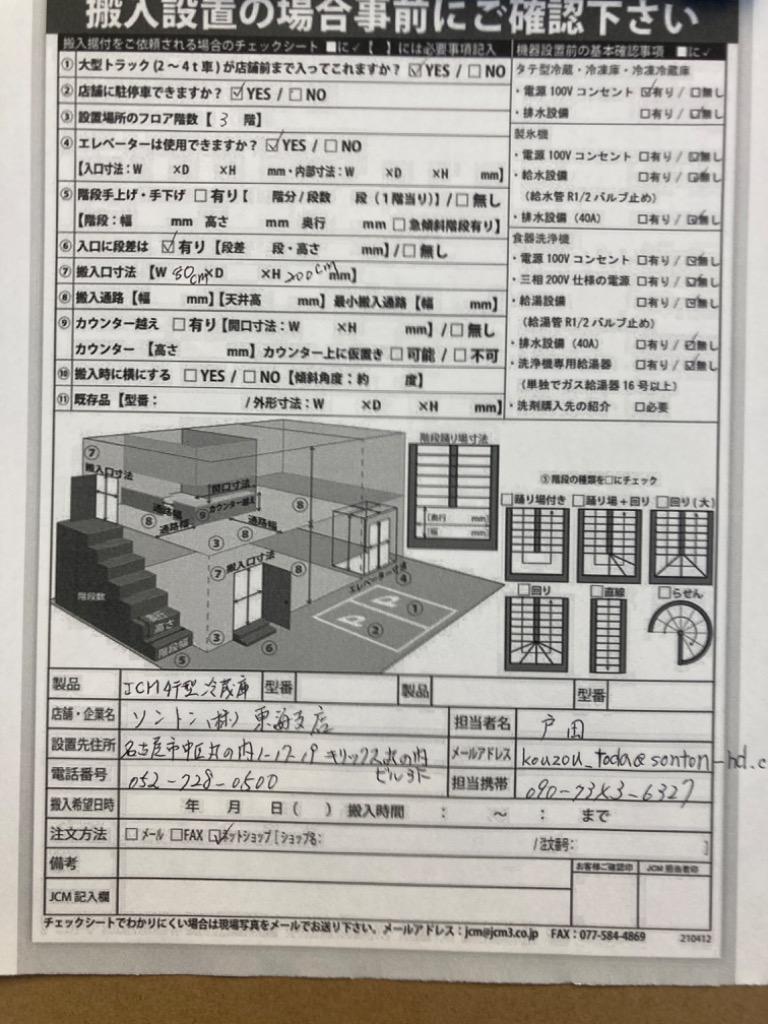 搬入設置の場合事前にご確認下さい
搬入据付をご依頼される場合のチェックシート ■に✓【 】には必要事項記入
① 大型トラック(2〜4t車)が店舗前まで入ってこれますか? ☑YES / □NO
② 店舗に駐停車できますか? ☑YES / □NO
③ 設置場所のフロア階数【 3 階】
④ エレベーターは使用できますか? ☑YES / □NO
【入口寸法:W ×D ×H mm・内部寸法:W ×D ×H mm】
⑤ 階段手上げ・手下げ □有り【 階分/段数 段(1階当り)】/□無し
【階段:幅 mm 高さ mm 奥行 mm □急傾斜階段有り】
⑥ 入口に段差は ☑有り【段差 段・高さ mm】/□無し
⑦ 搬入口寸法【W 80cm ×D ×H 200cm mm】
⑧ 搬入通路【幅 mm】【天井高 mm】最小搬入通路【幅 mm】
⑨ カウンター越え □有り【開口寸法:W ×H mm】/□無し
カウンター【高さ mm】カウンター上に仮置き □可能 / □不可
⑩ 搬入時に横にする □YES / □NO【傾斜角度:約 度】
⑪ 既存品【型番: /外形寸法:W ×D ×H mm】
機器設置前の基本確認事項 ■に✓
タテ型冷蔵・冷凍庫・冷凍冷蔵庫
・電源100Vコンセント ☑有り / □無し
・排水設備 □有り / □無し
製氷機
・電源100Vコンセント □有り / ☑無し
・給水設備 □有り / ☑無し
(給水管R1/2バルブ止め)
・排水設備(40A) □有り / ☑無し
食器洗浄機
・電源100Vコンセント □有り / ☑無し
・三相200V仕様の電源 □有り / ☑無し
・給湯設備 □有り / ☑無し
(給湯管R1/2バルブ止め)
・排水設備(40A) □有り / ☑無し
・洗浄機専用給湯器 □有り / ☑無し
(単独でガス給湯器16号以上)
・洗剤購入先の紹介 □必要
⑦
搬入口寸法
開口寸法
⑨ カウンター越え
⑧
通路幅
⑧
通路幅
⑧
③
⑦ 搬入口寸法
⑧
エレベーター寸法
④
階段数
高さ
階段幅
⑤
③
⑥
①
②
階段踊り場寸法
【奥行 mm】
【幅 mm】
⑤階段の種類を□にチェック
□踊り場付き □踊り場+回り □回り(大)
□回り □直線 □らせん
製品 JCM4F型冷蔵庫 型番 製品 型番
店舗・企業名 ソントン(株)東海支店 担当者名 戸田
設置先住所 名古屋市中区丸の内1-17-19 キリックス丸の内ビル3F メールアドレス kouzou_toda@sonton-hd.c
電話番号 052-728-0500 担当携帯 090-7343-6327
搬入希望日時 年 月 日( ) 搬入時間 : 〜 : まで
注文方法 □メール □FAX ☑ネットショップ[ショップ名: /注文番号: ]
備考
お客様ご確認印 JCM担当者印
JCM記入欄
チェックシートでわかりにくい場合は現場写真をメールでお送り下さい。メールアドレス:jcm@jcm3.co.jp FAX:077-584-4869
210412